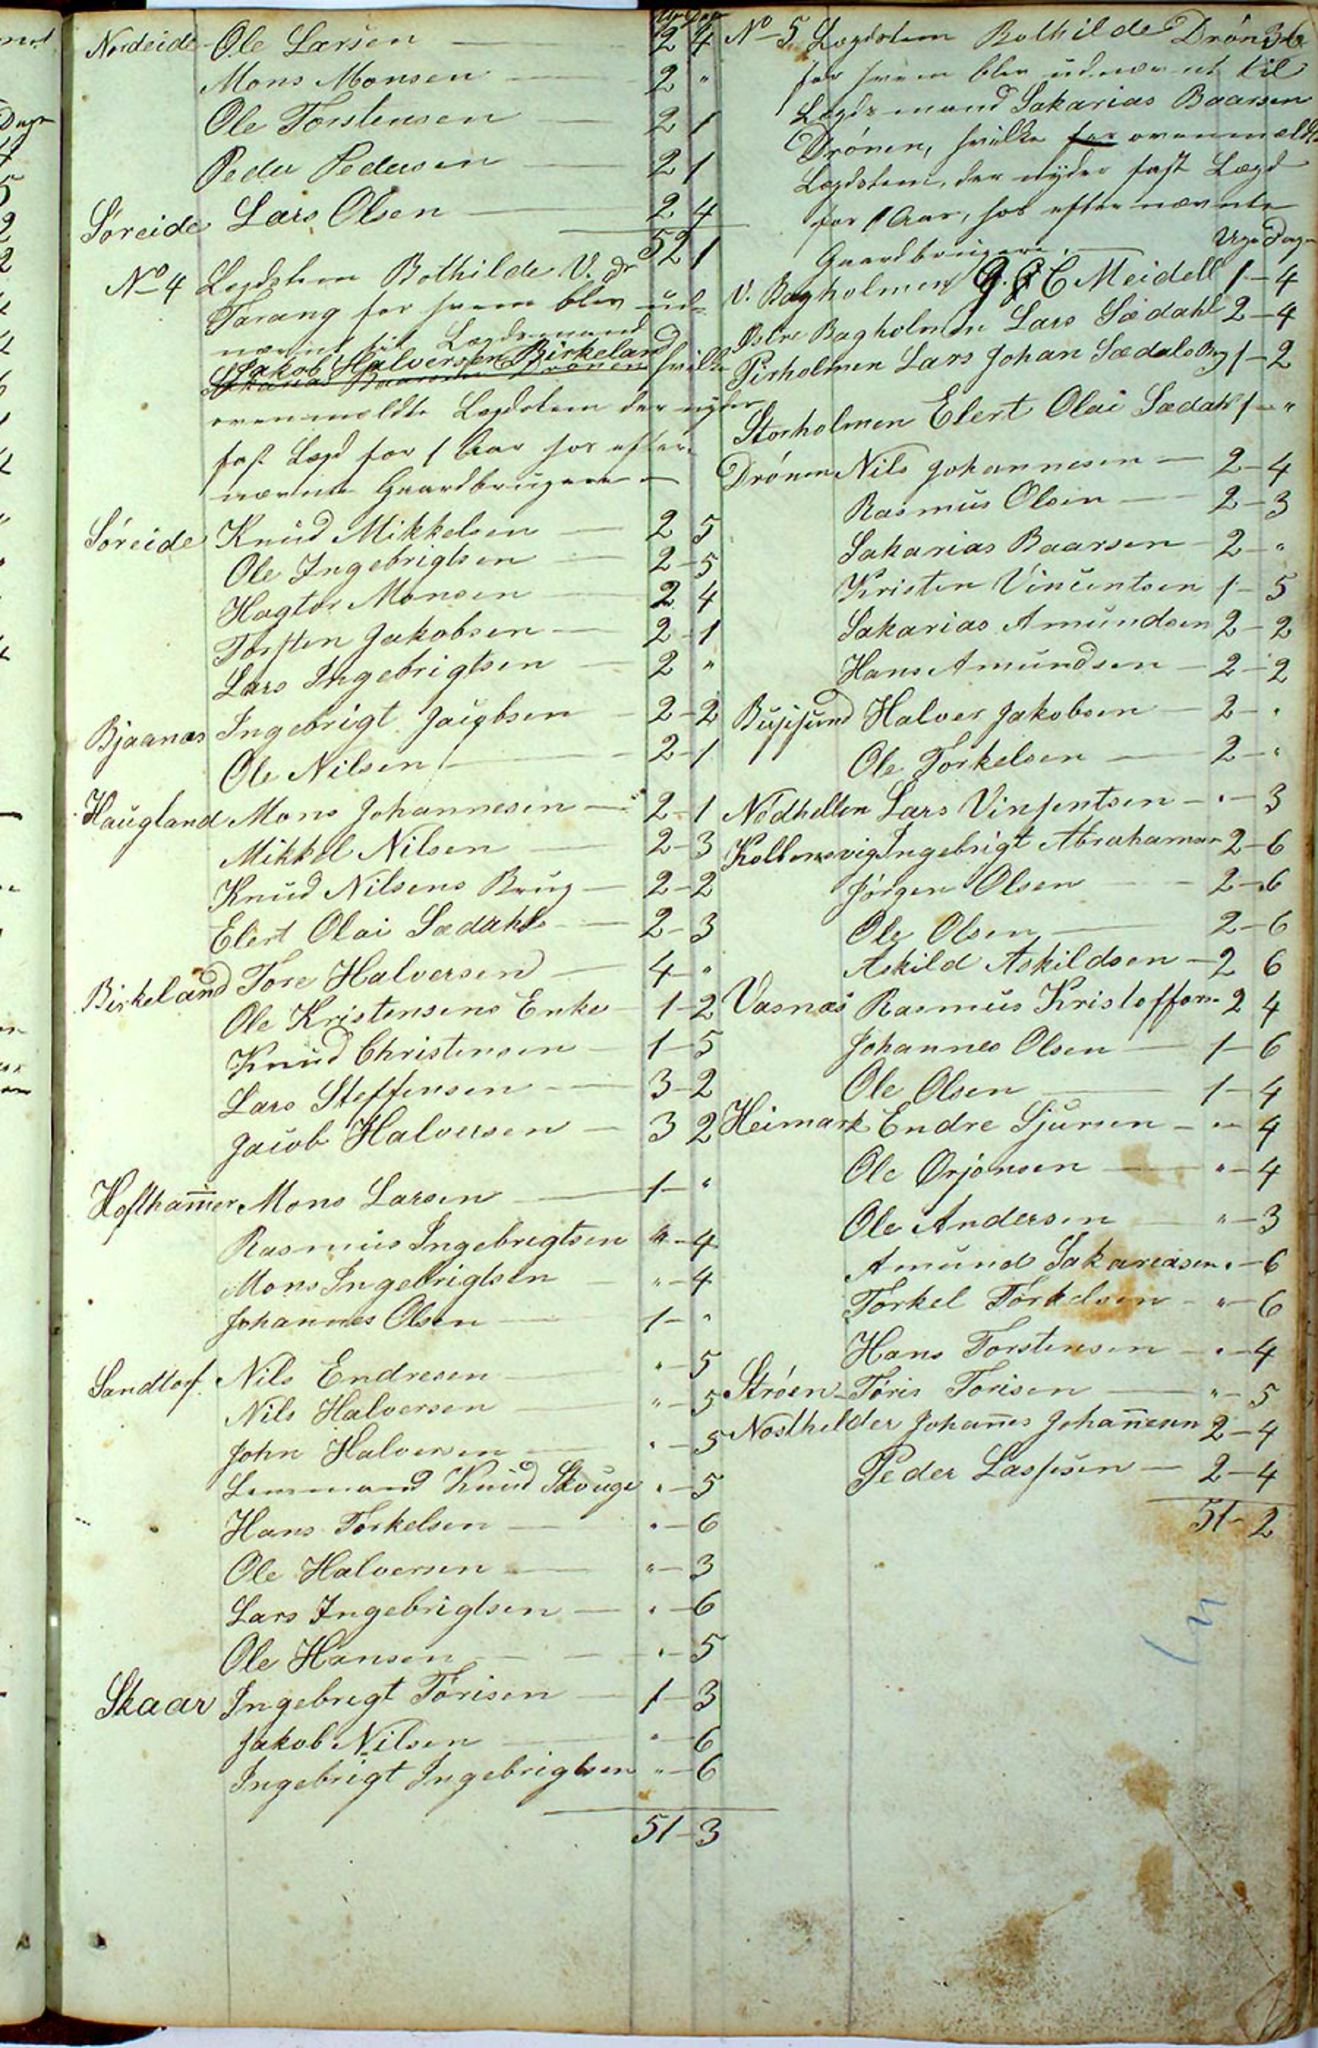 Uger Dage
Nordeide Ole Larsen — 2 4
Mons Monsen — 2 "
Ole Torstensen — 2 1
Peder Pedersen — 2 1
Søreide Lars Olsen — 2 4
52 1
No 4 Lægdslem Bothilde V. dr
Tarang for hvem blev ud-
nævnt til Lægdsmand
Jakob Halversen Birkeland hvilke
ovenmeldte Lægdslem der nyder
fast Lægd for 1 Aar hos efter-
nævnte Gaardbrugere —
Søreide Knud Mikkelsen — 2 5
Ole Ingebrigtsen — 2-5
Hagtor Monsen — 2 4
Torsten Jakobsen — 2-1
Lars Ingebrigtsen — 2 "
Bjaanæs Ingebrigt Jacobsen — 2-2
Ole Nilsen — 2-1
Haugland Mons Johannesen — 2-1
Mikkel Nilsen — 2-3
Knud Nilsens Brug — 2-2
Elert Olai Sædahl — 2-3
Birkeland Tore Halversen — 4-"
Ole Kristensens Enke — 1-2
Knud Christensen — 1-5
Lars Steffensen — 3-2
Jacob Halversen — 3 2
Hoftham̄er Mons Larsen — 1-"
Rasmus Ingebrigtsen "-4
Mons Ingebrigtsen — "-4
Johannes Olsen — 1-"
Sandtorf. Nils Endresen — "-5
Nils Halversen — "-5
John Halversen — "-5
Lensmand Knud Skouge "-5
Hans Torkelsen — "-6
Ole Halversen — "-3
Lars Ingebrigtsen — "-6
Ole Hansen — "-5
Skaar Ingebrigt Torisen — 1-3
Jakob Nilsen — "-6
Ingebrigt Ingebrigtsen "-6
51-3
No 5 Lægdslem Bothilde Drønen
for hvem blev udnævnt til
Lægdsmand Sakarias Baarsen
Drønen, hvilke for ovenmeldte
Lægdslem, der nyder fast Lægd
for 1 Aar, hos efternævnte
Gaardbrugere. — Uger Dage
V. Bagholmen G. C Meidell 1-4
Østre Bagholmen Lars Sædahl 2-4
Pirholmen Lars Johan Sædals Brg 1-2
Storholmen Elert Olai Sædahl 1-"
Drönen Nils Johannesen — 2-4
Rasmus Olsen — 2-3
Sakarias Baarsen — 2-"
Kristen Vincentsen 1-5
Sakarias Amundsen 2-2
Hans Amundsen — 2-2
Halver Jakobsen — 2-"
Ole Torkelsen — 2-"
Nodhellen Lars Vinsentsen — "-3
Kolbensvig Ingebrigt Abrahamsen 2-6
Jørgen Olsen — 2-6
Ole Olsen — 2-6
Askild Askildsen — 2 6
Vasnæs Rasmus Kristoffers- 2 4
Johannes Olsen — 1-6
Ole Olsen — 1-4
Heimark Endre Sjursen — "-4
Ole Ørjansen — "-4
Ole Andersen — "-3
Amund Sakariasen "-6
Torkel Torkelsen — "-6
Hans Torstensen — "-4
Strøen Toris Torisen — "-5
Nosthelder Johan̄es Johan̄esen 2-4
Peder Lassesen — 2-4
51-2